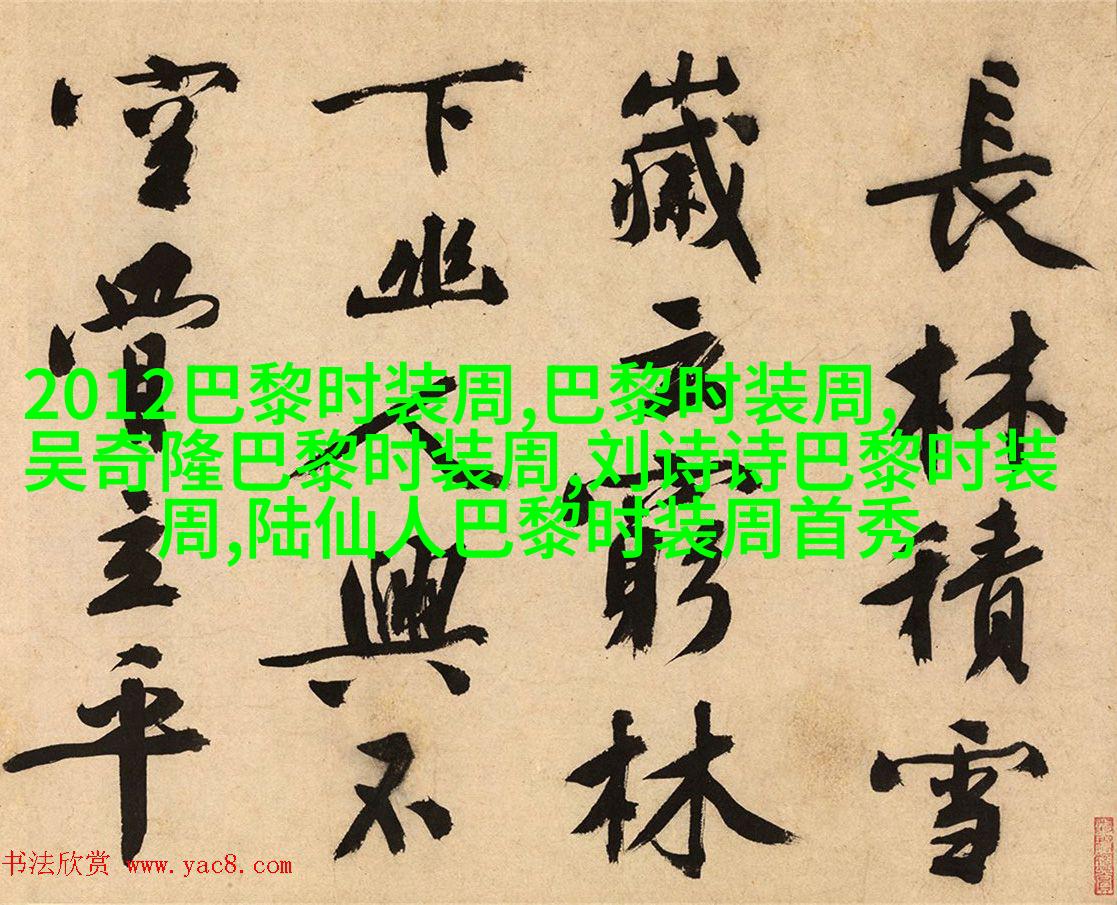 長林積雪
嵗云窮林
下幽人興不
空曾立平
2012巴黎时装周,巴黎时装周,
吴奇隆巴黎时装周,刘诗诗巴黎时装
周,陆仙人巴黎时装周首秀
书法欣赏 www.yac8.com